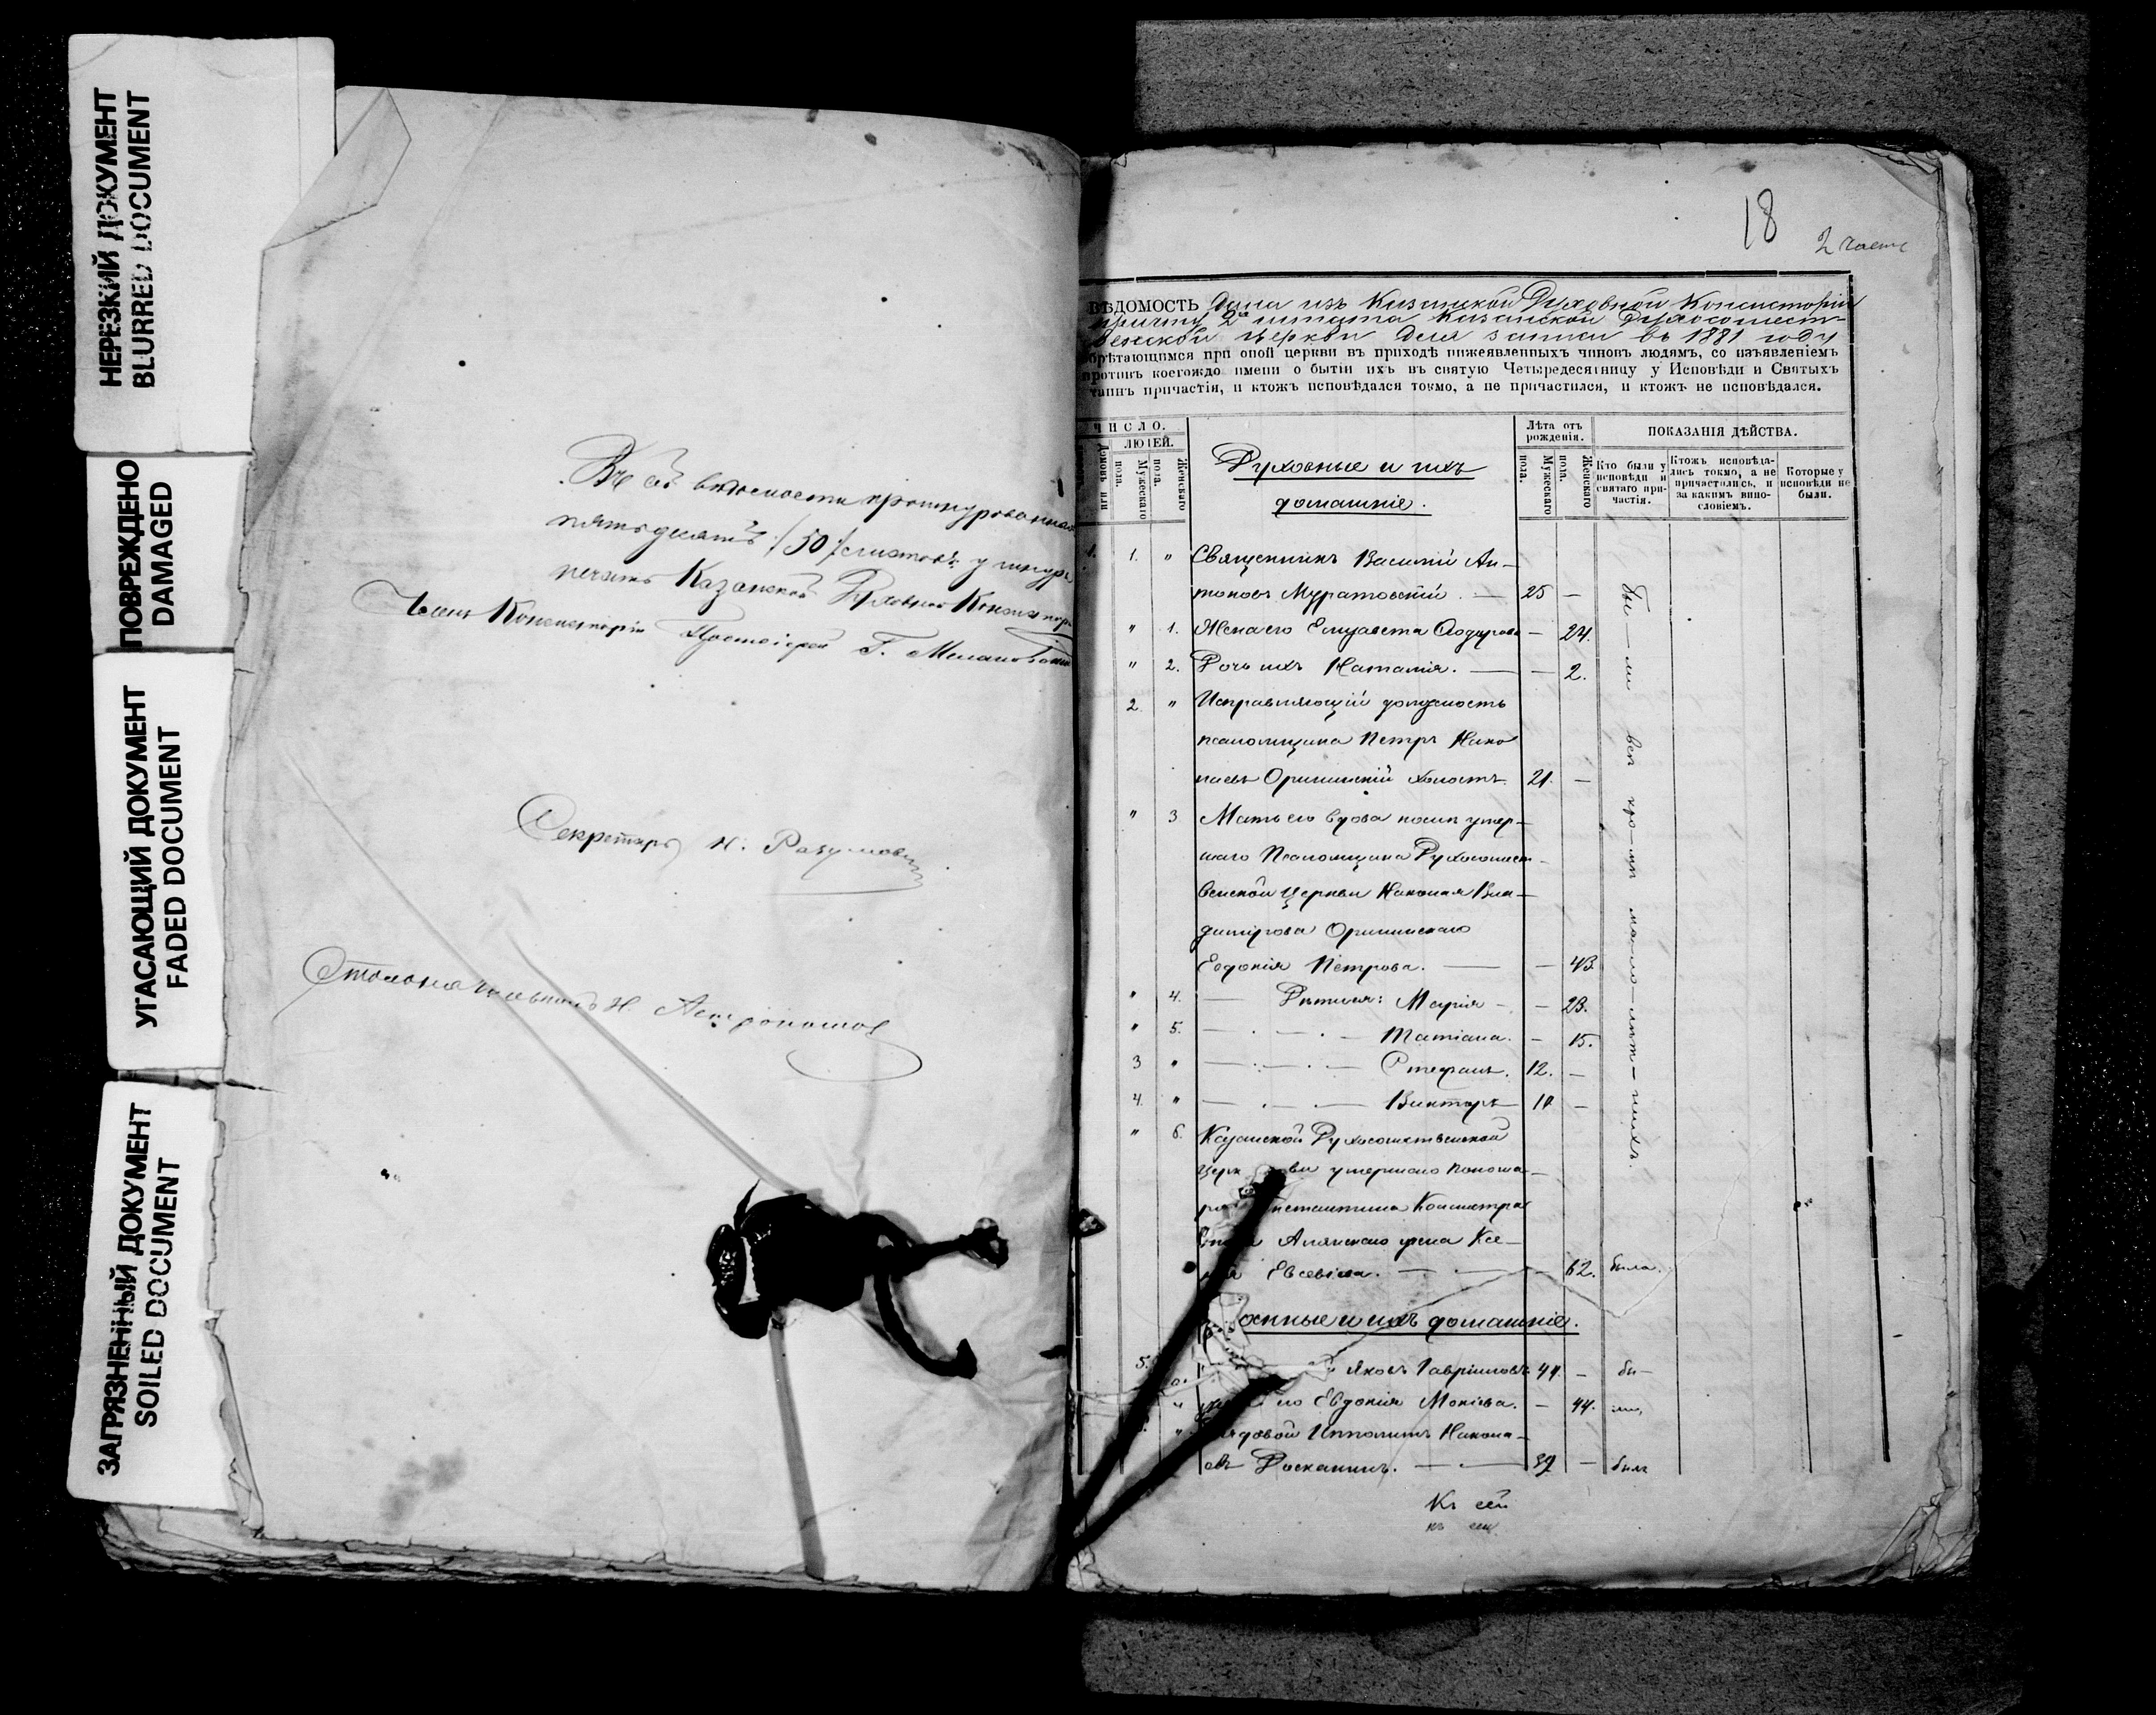 НЕРЕЗКИЙ ДОКУМЕНТ
BLURRED DOCUMENT
ПОВРЕЖДЕНО
DAMAGED
УГАСАЮЩИЙ ДОКУМЕНТ
FADED DOCUMENT
ЗАГРЯЗНЕННЫЙ ДОКУМЕНТ
SOILED DOCUMENT
Въ сей вѣдомости прошнурованной
пятьдесятъ /50/ листовъ, у шнура
печать Казанской Духовной Консистор
Членъ Консисторіи Протоіерей Г.
Секретарь Н. Разумов
Столоначальникъ Н.
18
2 часть
ВѢДОМОСТЬ Дана изъ Казанской Духовной Консисторіи
причту 2 штата Казанской Духосошест-
венской церкви для записи въ 1881 году
обрѣтающимся при оной церкви въ приходѣ нижеявленныхъ чиновъ людямъ, со изъявленіемъ
противъ коегождо имени о бытіи ихъ въ святую Четыредесятницу у Исповѣди и Святыхъ
таинъ причастія, и ктожъ исповѣдался токмо, а не причастился, и ктожъ не исповѣдался.
ЧИСЛО.
ЛЮДЕЙ.
Мужескаго пола.
Женскаго пола.
Духовные и ихъ
домашніе.
Лѣта отъ рожденія.
Мужескаго пола.
Женскаго пола.
ПОКАЗАНІЯ ДѢЙСТВА.
Кто были у исповѣди и святаго причастія.
Ктожъ исповѣдались токмо, а не причастились, и за какимъ винословіемъ.
Которые у исповѣди не были.
1. 1. " Священникъ Василій Ан-
тоновъ Муратовскій. — 25 —
" 1. Жена его Елизавета Ѳодорова — 24.
" 2. Дочь ихъ Наталія. — — 2.
2. " Исправляющій должность
псаломщика Петръ Нико
лаевъ Оришинскій холостъ. 21. —
" 3 Мать его вдова послѣ умер-
шаго Псаломщика Духосошест-
венской Церкви Николая
Евдокія Петрова. — — 43.
" 4. — Дѣти ея: Марія — — 23.
" 5. — Татіана. — 15.
3 " — Стефанъ. 12. —
4. " — Викторъ — 10 —
Бы-ли всѣ кро-мѣ мало-лѣт-нихъ.
" 6. Казанской Духосошественской
Церкви умершаго Понома-
жена Ксе-
нія Евсевіева. — — 62. была.
и ихъ домашніе.
5. Яковъ Гавриловъ 44. — бы-
его Евдокія Мокіева. — 44. ли,
Рядовой Ипполитъ Никола-
евъ Доскинъ. — 39 — былъ